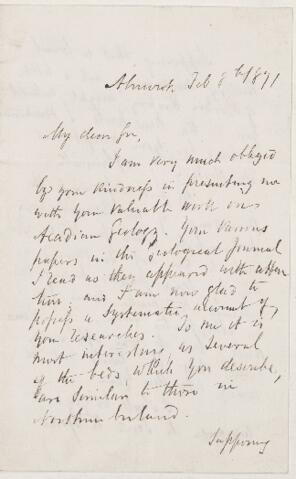 Alnwick Feb 8th 1871
My dear Sir,
I am very much obliged
by your kindness in presenting me
with your valuable work on
Acadian Geology. Your various
papers in the Geological Journal
I read as they appeared with atten
tion and I am now glad to
possess a systematic account of
your researches. To me it is
most interesting as several
of the beds, which you describe,
are similar to those in
Northumberland.
Supposing